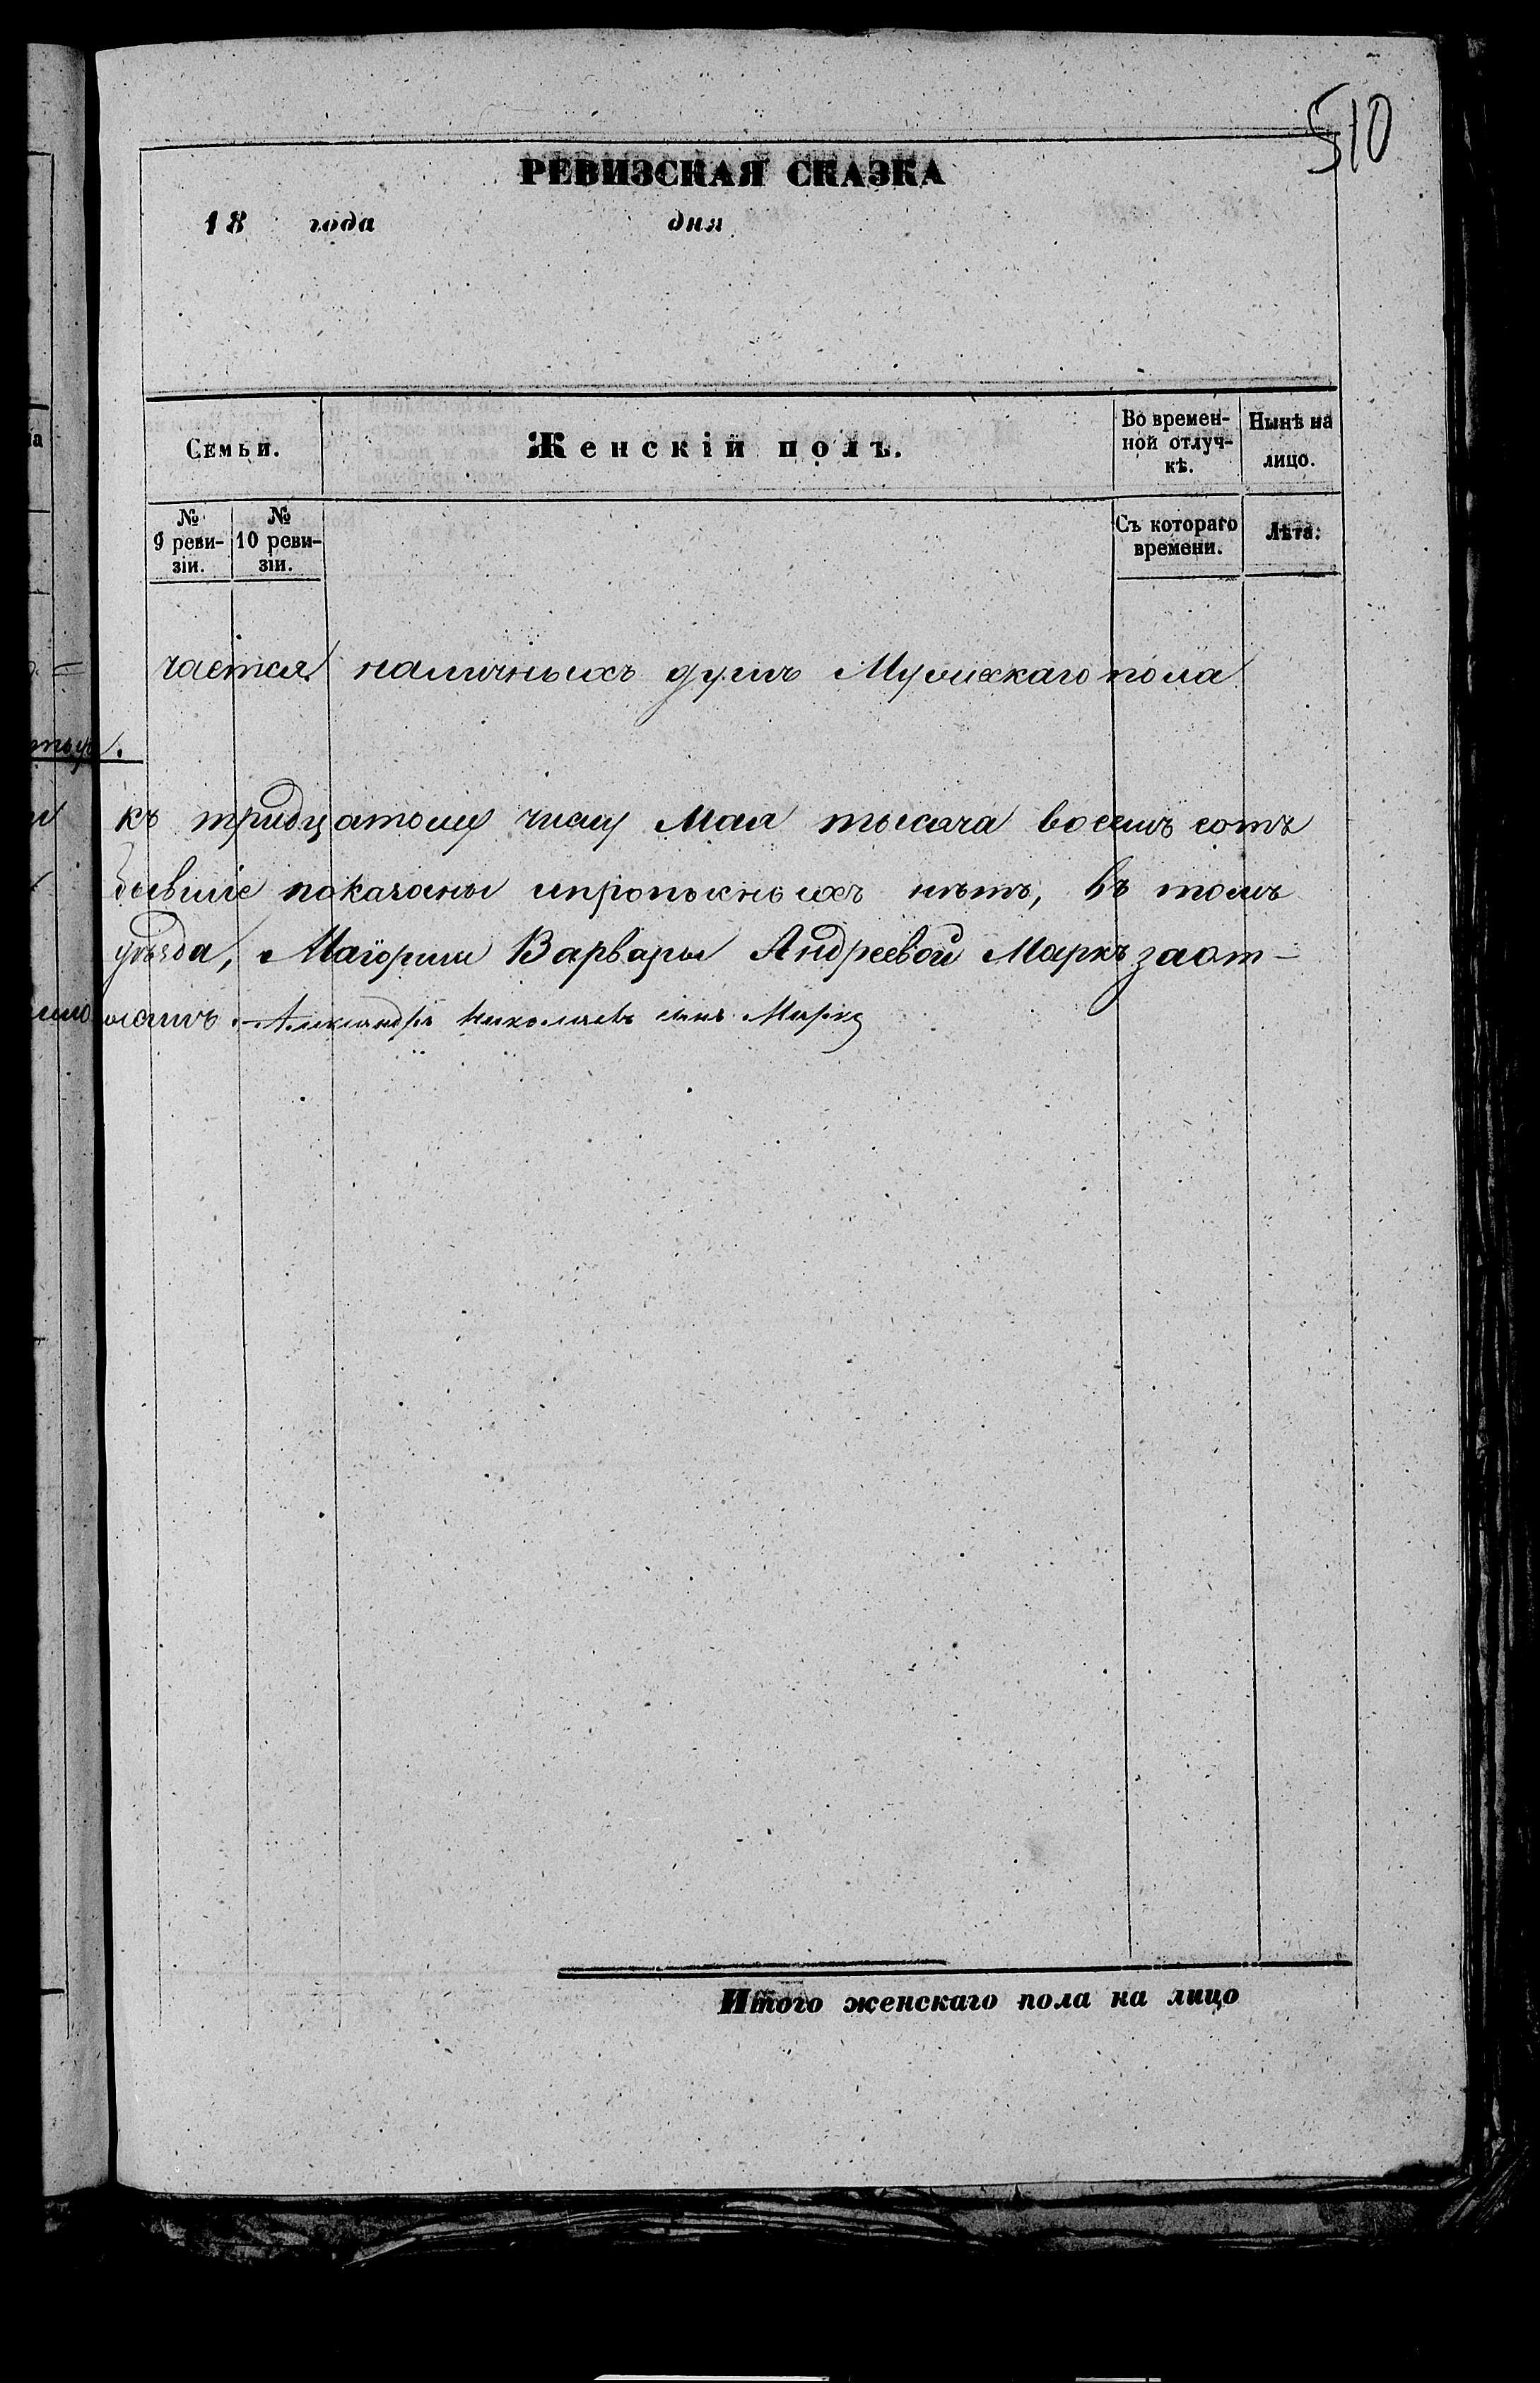 510
РЕВИЗСКАЯ СКАЗКА
18 года дня
Семьи. Женскій полъ. Во времен-ной отлуч-кѣ. Нынѣ на лицо.
№ 9 реви-зіи. № 10 реви-зіи. Съ котораго времени. Лѣта.
чается наличныхъ душъ Мужскаго пола
къ тридцатому числу Мая тысяча восемь сотъ
бывшіе показаны ипрописныхъ нѣтъ, въ томъ
уѣзда, Маіорши Варвары Андреевой Маркъ заот-
Александръ Николаевъ сынъ Маркъ
Итого женскаго пола на лицо